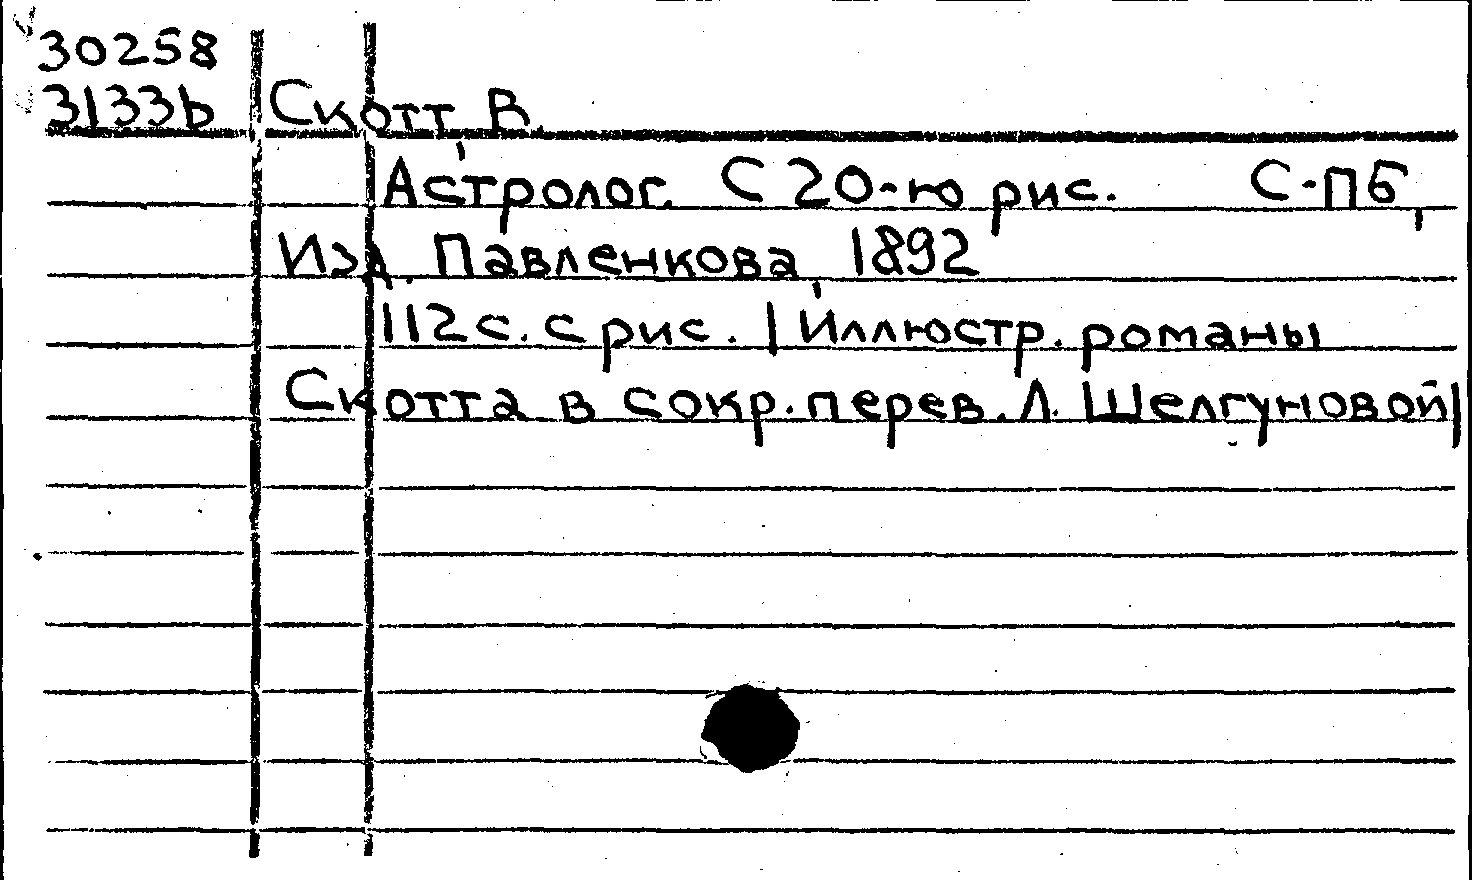 30258
3133ь Скотт, В.
Астролог. С 20-ю рис. С-ПБ,
Изд. Павленкова, 1892
112 с. с рис. | Иллюстр. романы
Скотта в сокр. перев. Л. Шелгуновой|